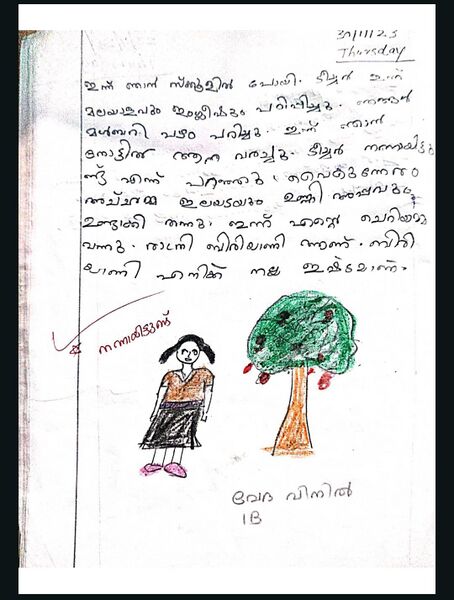 30/11/23
Thursday
ഇന്ന് ഞാൻ സ്ക്കൂളിൽ പോയി. ടീച്ചർ ഇന്ന്
മലയാളവും ഇംഗ്ലീഷും പഠിപ്പിച്ചു. ഞങ്ങൾ
മൾബറി പഴം പറിച്ചു. ഇന്ന് ഞാൻ
നോട്ടിൽ ആന വരച്ചു. ടീച്ചർ നന്നായിട്ടു
ണ്ട് എന്ന് പറഞ്ഞു. വൈകുന്നേരം
അച്ഛമ്മ ഇലയടയും ഉണ്ണി അപ്പവും
ഉണ്ടാക്കി തന്നു. ഇന്ന് എൻ്റെ ചെറിയമ്മ
വന്നു. രാത്രി ബിരിയാണി ന്നാണ്. ബിരി
യാണി എനിക്ക് നല്ല ഇഷ്ടമാണ്.
നന്നായിട്ടുണ്ട്
വേദ വിനിൽ
1B